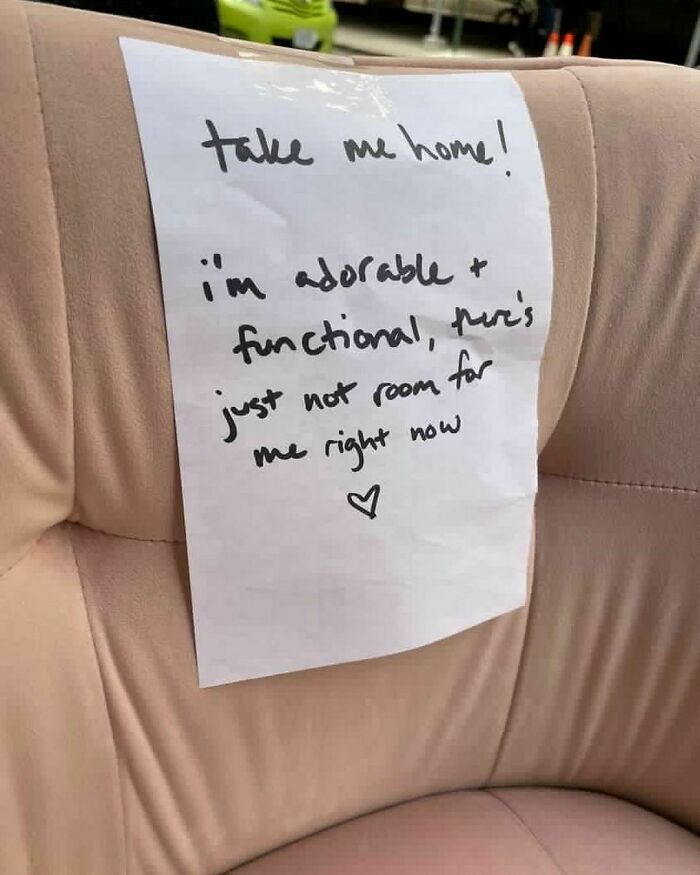 take me home!
i'm adorable +
functional, there's
just not room for
me right now